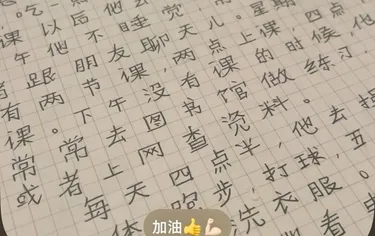 。吃一点
课以后他去
午他不睡觉
跟朋友聊天儿。星期
有两节课，两点上课 四点
课。下午没有课的时候，他
常常去图书馆做练习、
或者上网查资料。
每天四点半，他去操
跑步，打球，五
洗衣服。
看
加油👍💪🏻